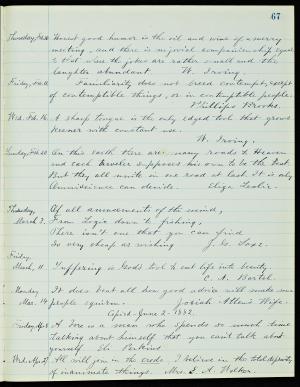 67
Thursday, Feb. 10. Honest good humor is the oil and wine of a merry
meeting, and there is no jovial companionship equal
to that where the jokes are rather small and the
laughter abundant W. Irving.
Friday, Familiarity does not breed contempt, except
of contemptible things, or in contemptible people.
Phillips Brooks.
Wed. Feb. 16. A sharp tongue is the only edged tool that grows
keener with constant use.
W. Irving.
Sunday, Feb. 20 On this earth there are many roads to Heaven
and each traveler supposes his own to be the best
But they all unite in one road at last. It is only
Omniscience can decide. Eliza Leslie.
Thursday, Of all amusements of the mind,
March 3. From Logic down to fishing,
There isn't one that you can find
So very cheap as wishing J. G. Saxe.
Friday,
March, 11. Suffering is God's tool to cut life into beauty.
C. A. Bartol.
Monday, It does beat all how good advice will make some
Mar. 14 people squirm. Josiah Allen's Wife.
April - June 2 - 1882.
Friday, Apr. 8 A bore is a man who spends so much time
talking about himself that you can't talk about
yourself Eli Perkins
Wed. Apr. 27 As will you in the credo, I believe in the total depravity
of inanimate things. Mrs. E. A. Walker.